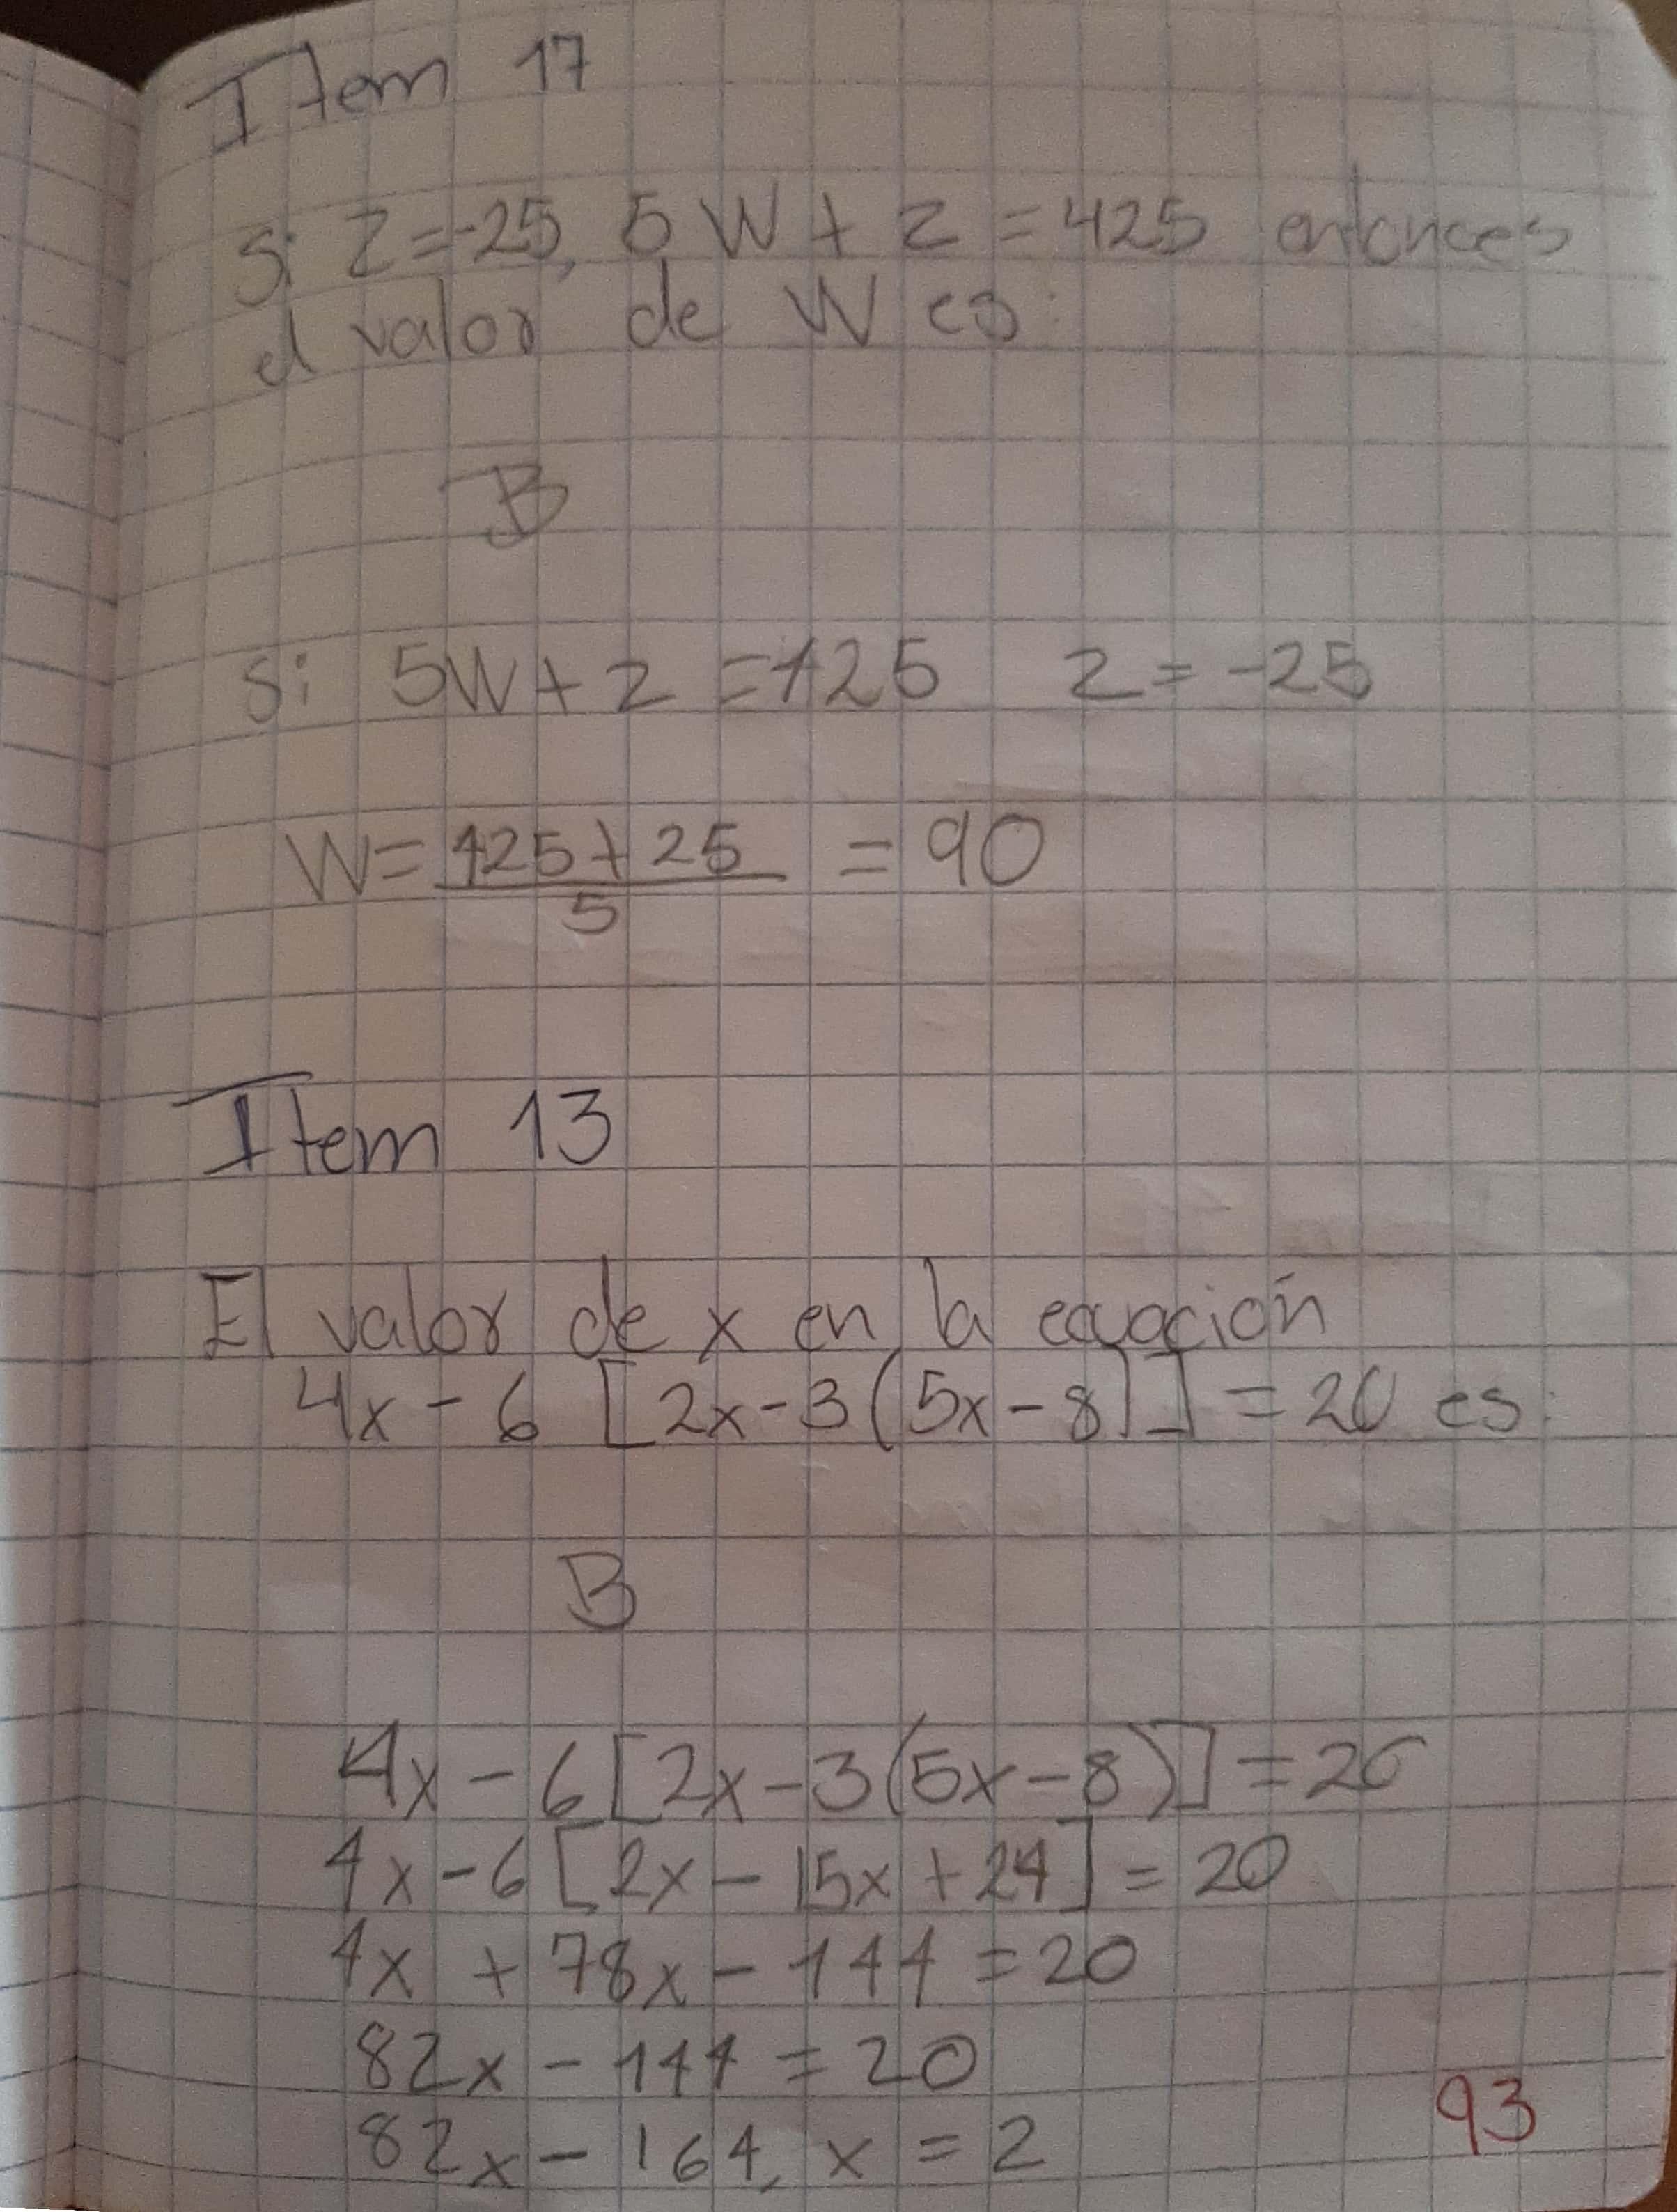 Item 17
Si Z=-25, 5W+z=425 entonces
el valor de W es:
B
Si 5W+z=425 z=-25
W=425+25 = 90
5
Item 13
El valor de x en la ecuación
4x-6[2x-3(5x-8)]=20 es:
B
4x-6[2x-3(5x-8)]=20
4x-6[2x-15x+24]=20
4x+78x-144=20
82x-144=20
82x-164, x=2
93